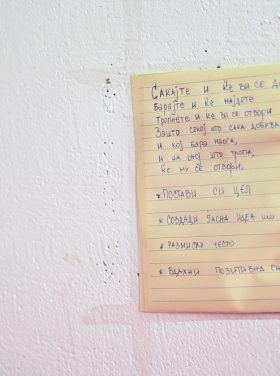 Сакајте и ќе ви се д
Барајте и ќе најдете
Тропнете и ќе ви се отвори
Зашто секој што сака добива
и кој бара наоѓа,
и на оној што тропа,
ќе му се отвори.
* Постави си цел
* Создади јасна идеа
* Размисли често
* Вдахни позитивна